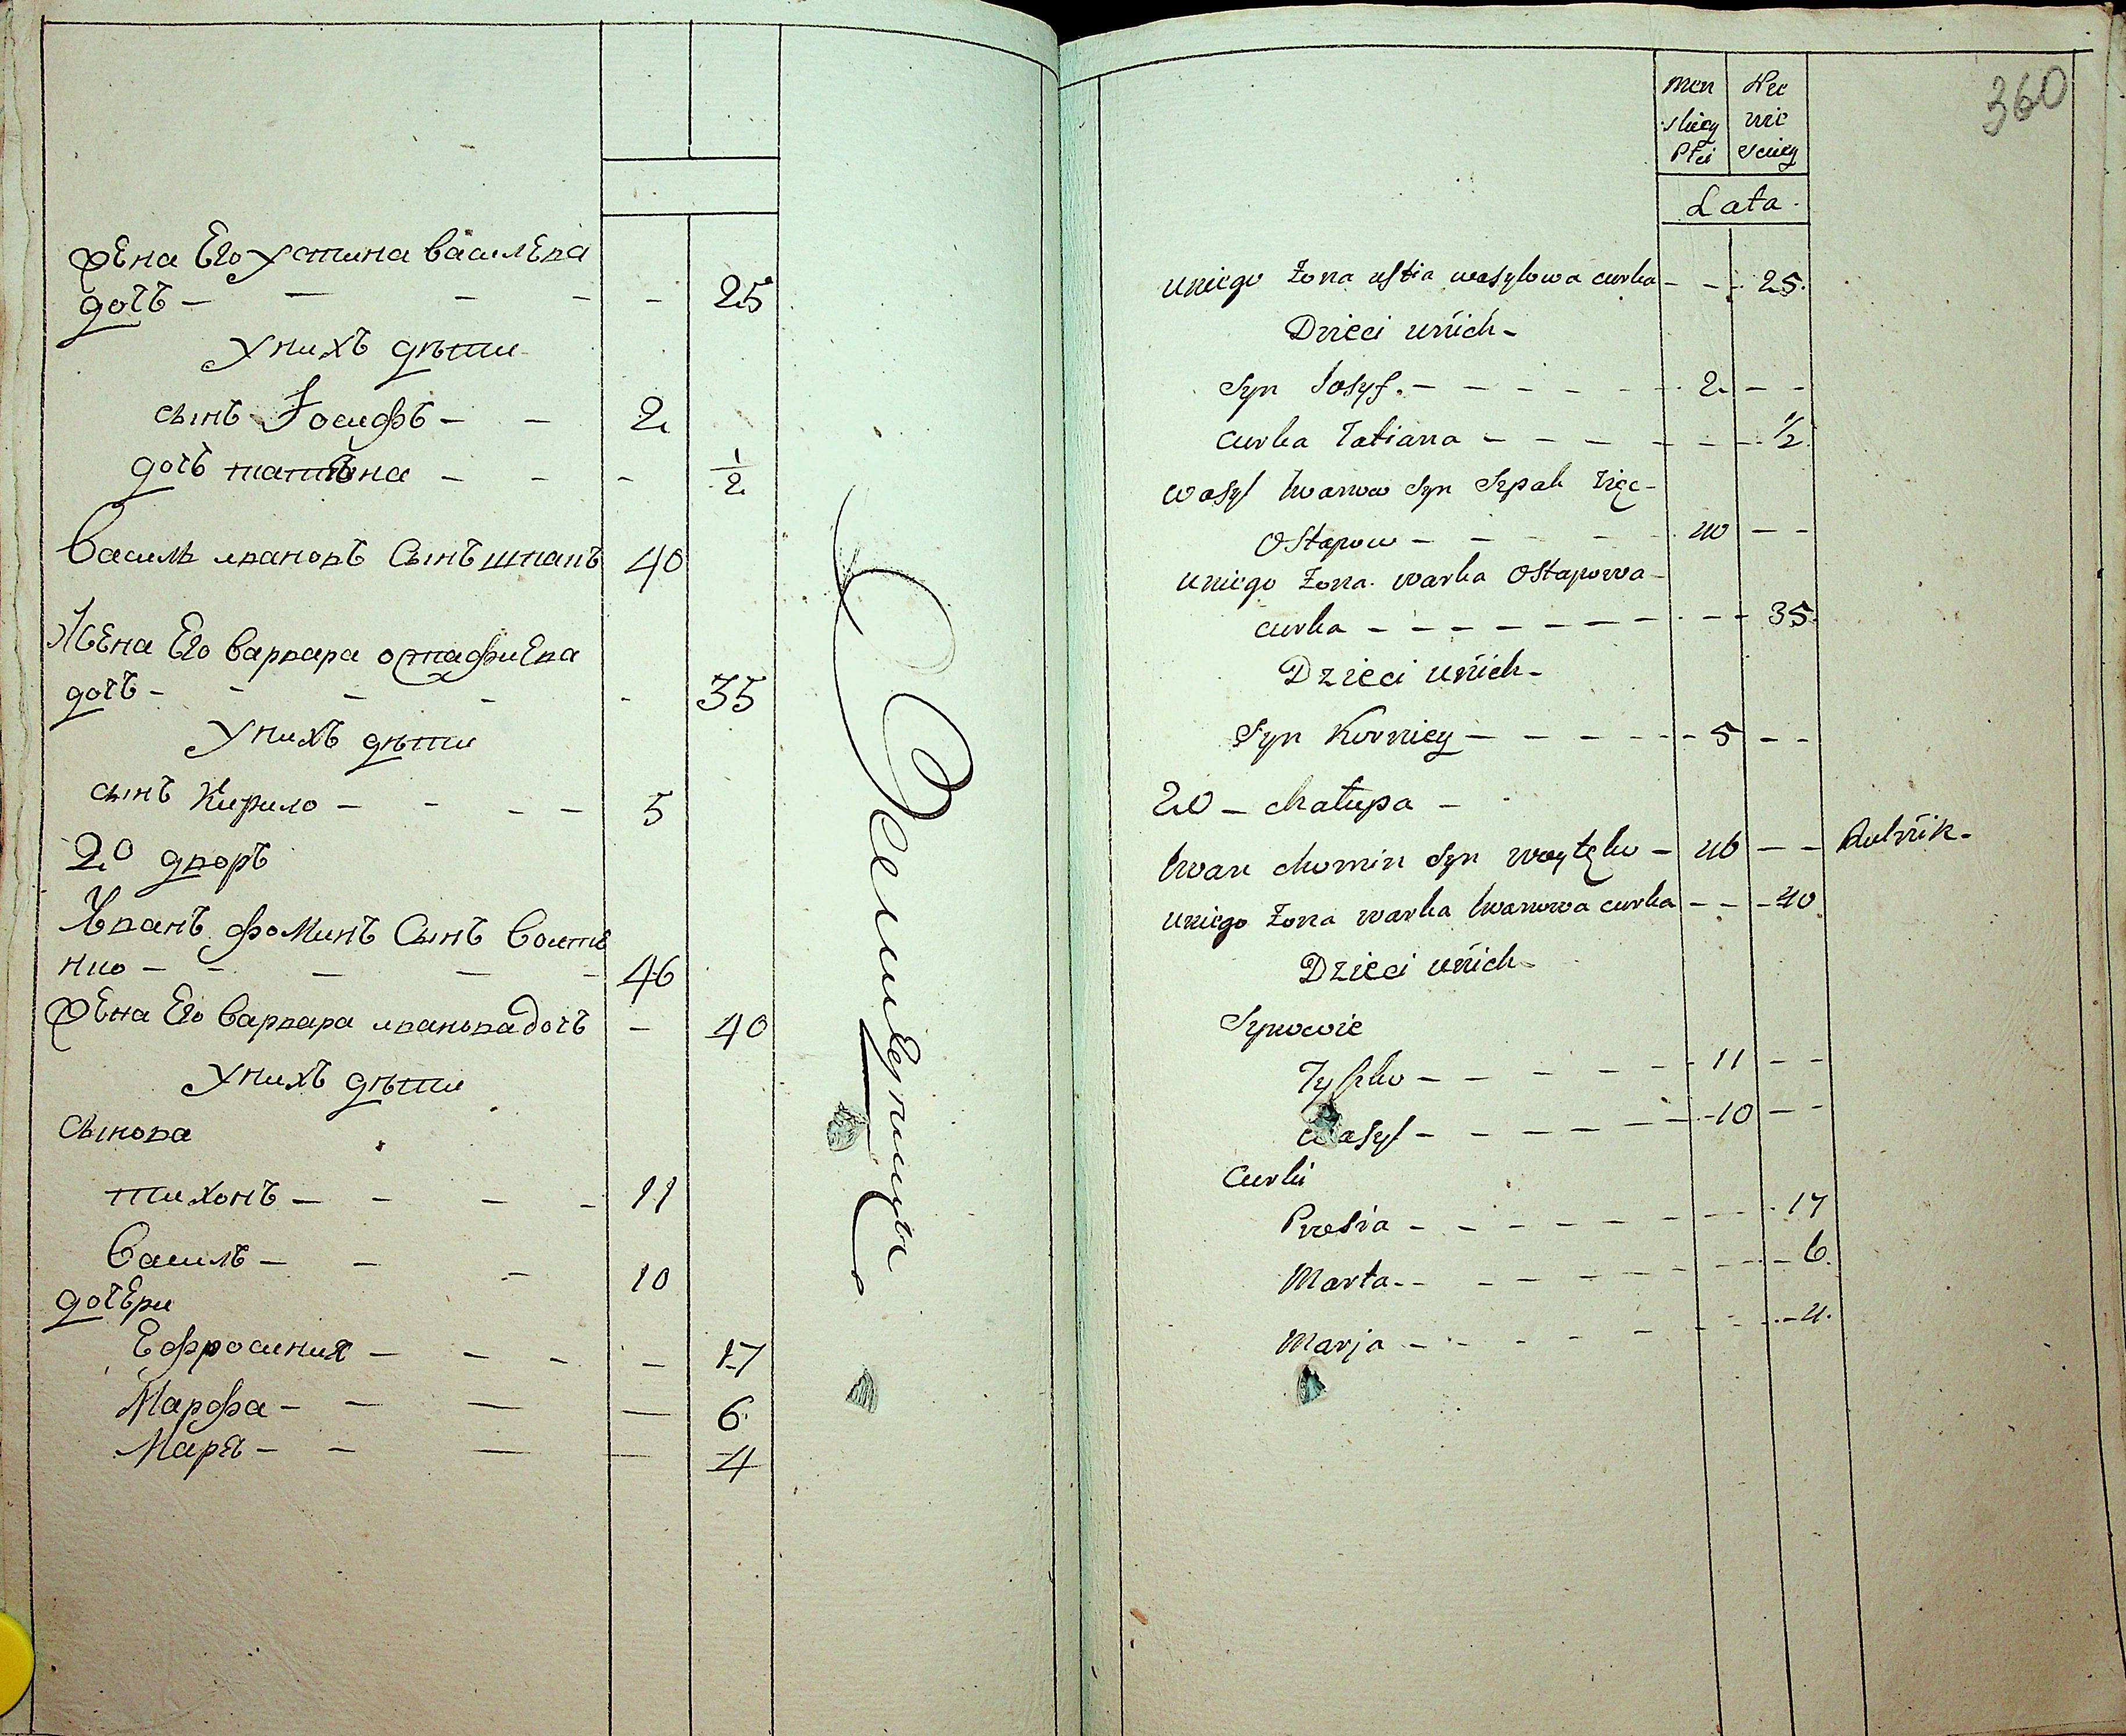 жена Его Устина васильева
дочь - - - - - 25
У нихъ дѣти
сынъ Іосифъ - - 2
дочь татьяна - - - 1/2
Василь ивановъ Сынъ шпакъ 40
Жена Его варвара остафиева
дочь - - - - - 35
У нихъ дѣти
сынъ Кирило - - - - 5
20 дворъ
Иванъ фоминъ Сынъ Воитѣ
нко - - - - - 46
жена Его варвара иванова дочь - 40
У нихъ дѣти
сынова
тихонъ - - - - 11
Василь - - - 10
дочери
Ефросиния - - - - 17
Марфа - - - - 6
Маря - - - - 4
360
men Nie
skiey wie
Płci sciey
Lata
uniego Żona ustia wasylowa curka - - - 25.
Dzieci unich -
Syn Iosyf. - - - - - - 2. - -
curka Tatiana - - - - - - - 1/2
wasyl Iwanow Syn Szpak Zięc -
Ostapow - - - - - 40 - -
uniego Żona warka Ostapowa -
curka - - - - - - - - - 35
Dzieci unich -
Syn Korniey - - - - - - 5 - -
20 - chałupa -
Iwan chomin Syn woytęko - 46 - - Rolnik -
uniego Żona warka Iwanowa curka - - - 40
Dzieci unich -
Synowie
Tyszko - - - - - - 11 - -
wasyl - - - - - - 10 - -
Curki
Prosia - - - - - - - - 17
Marta - - - - - - - - 6.
Marja - - - - - - - - 4.